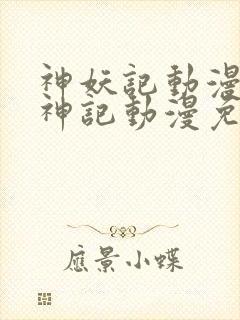 神妖記動漫
神記動漫免
應景小蝶